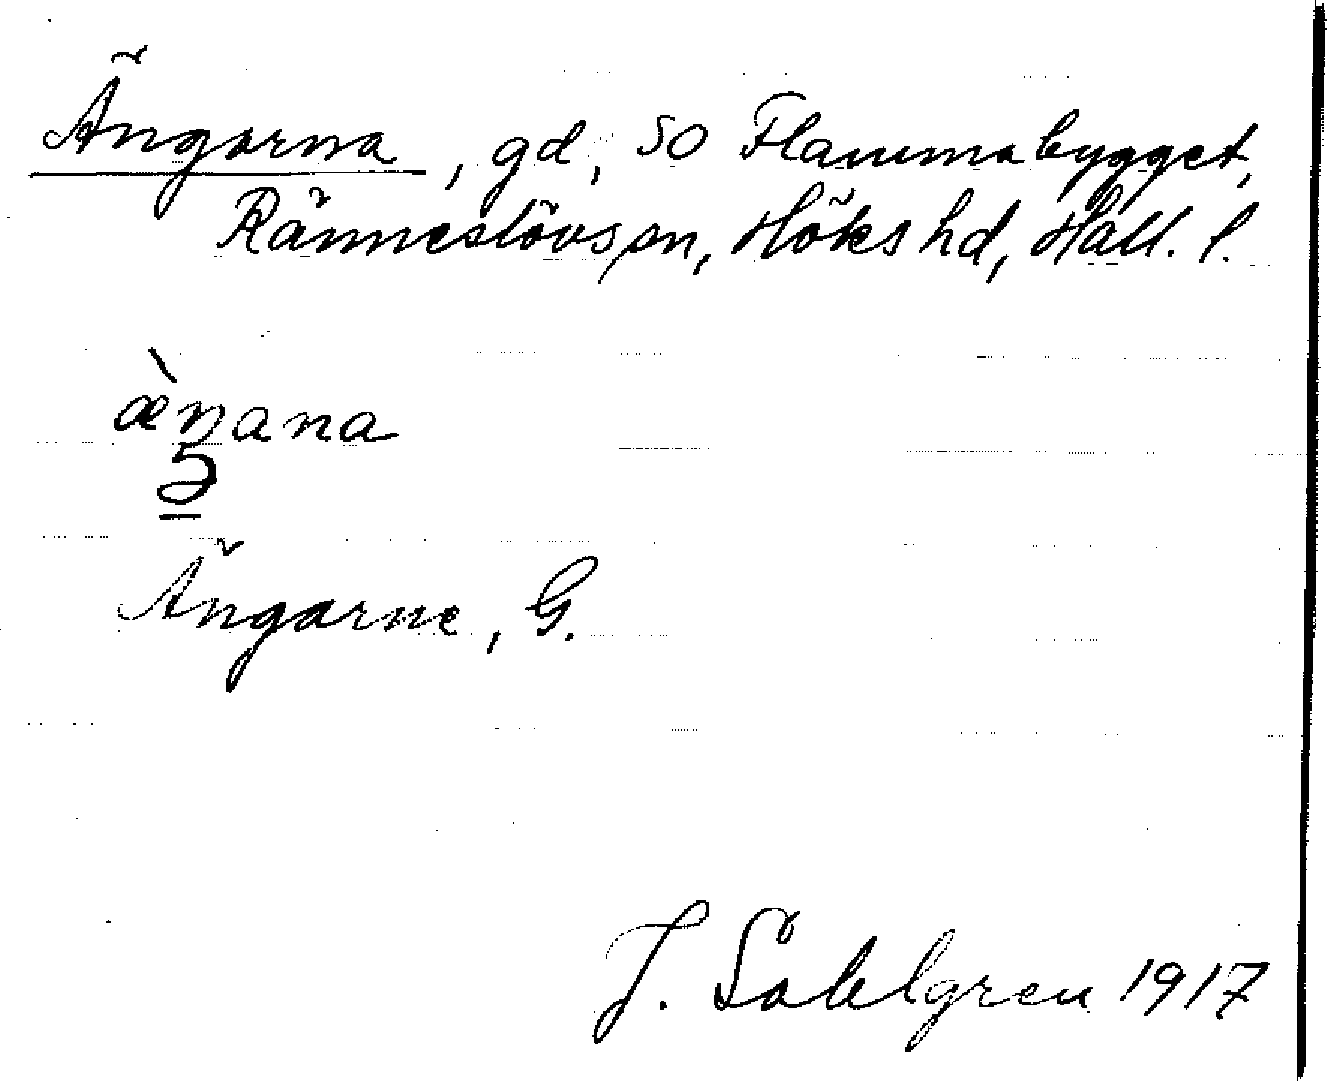 Ängarna, gd, SO Flammabygget,
Ränneslövs sn, Höks hd, Hall. l.
æ̀ŋana
Ängarne, G.
J. Sahlgren 1917